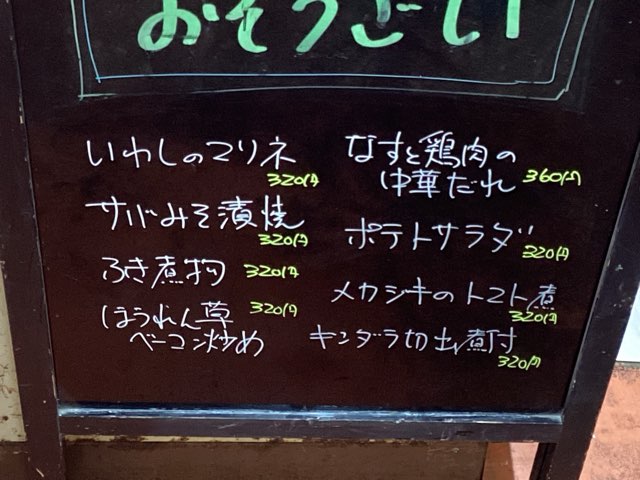 おそうざい
いわしのマリネ
320円
サバみそ漬焼
320円
ふき煮物 320円
ほうれん草 320円
ベーコン炒め
なすと鶏肉の
中華だれ 360円
ポテトサラダ
320円
メカジキのトマト煮
320円
キンダラ切出煮付
320円